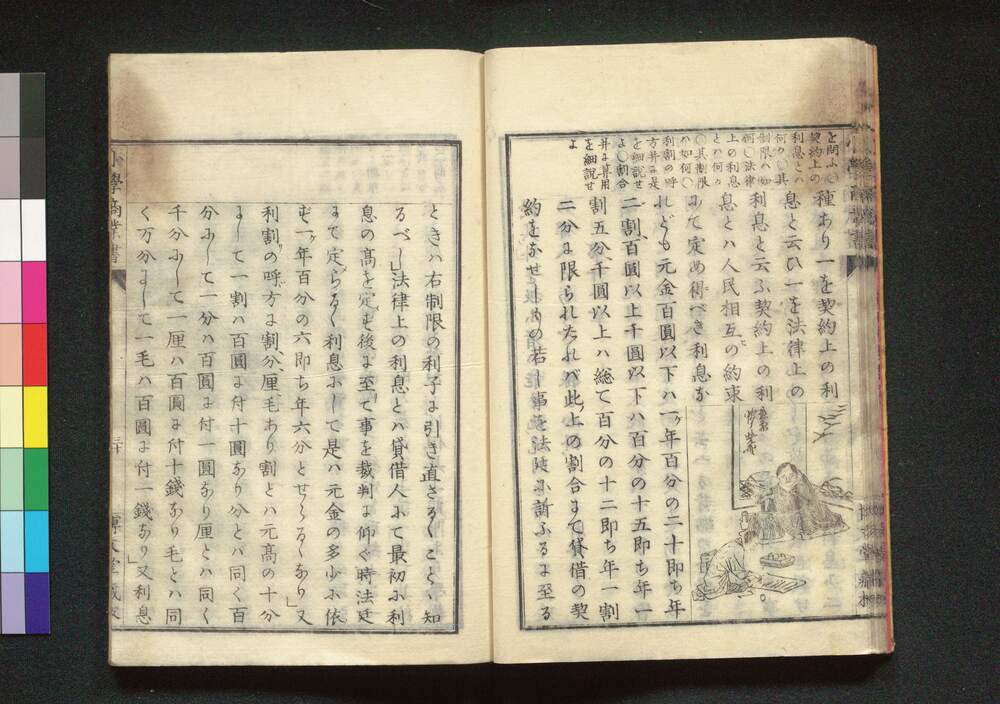 を問ふ
契約上の
利息とハ
何〇其
制限ハ如
何〇法律
上の利息
とハ何〇
〇其制限
ハ如何〇
利割の呼
方并に是
を細説せ
よ〇割合
并に算用
を細説せ
よ
種あり一を契約上の利
息と云ひ一を法律上の
利息と云ふ契約上の利
息とハ人民相互の約束
にて定め得べき利息な
れども元金百圓以下ハ一ヶ年百分の二十即ち年
二割百圓以上千圓以下ハ百分の十五即ち年一
割五分千圓以上ハ総て百分の十二即ち年一割
二分に限られたれバ此上の割合まで貸借の契
約をなせしものの若し事を法廷に訴ふるに至る
ときハ右制限の利子に引き直さるゝことゝ知
るべし」法律上の利息とハ貸借人にて最初に利
息の髙を定めず後に至て事を裁判に仰ぐ時法廷
にて定らるゝ利息にして是ハ元金の多少に依
らず一ヶ年百分の六即ち年六分とせらるゝなり」又
利割の呼方に割分厘毛あり割とハ元髙の十分
にして一割ハ百圓に付十圓なり分とハ同く百
分にして一分ハ百圓に付一圓なり厘とハ同く
千分にして一厘ハ百圓に付十錢なり毛とハ同
く万分にして一毛ハ百圓に付一錢なり」又利息
學商業書
三十